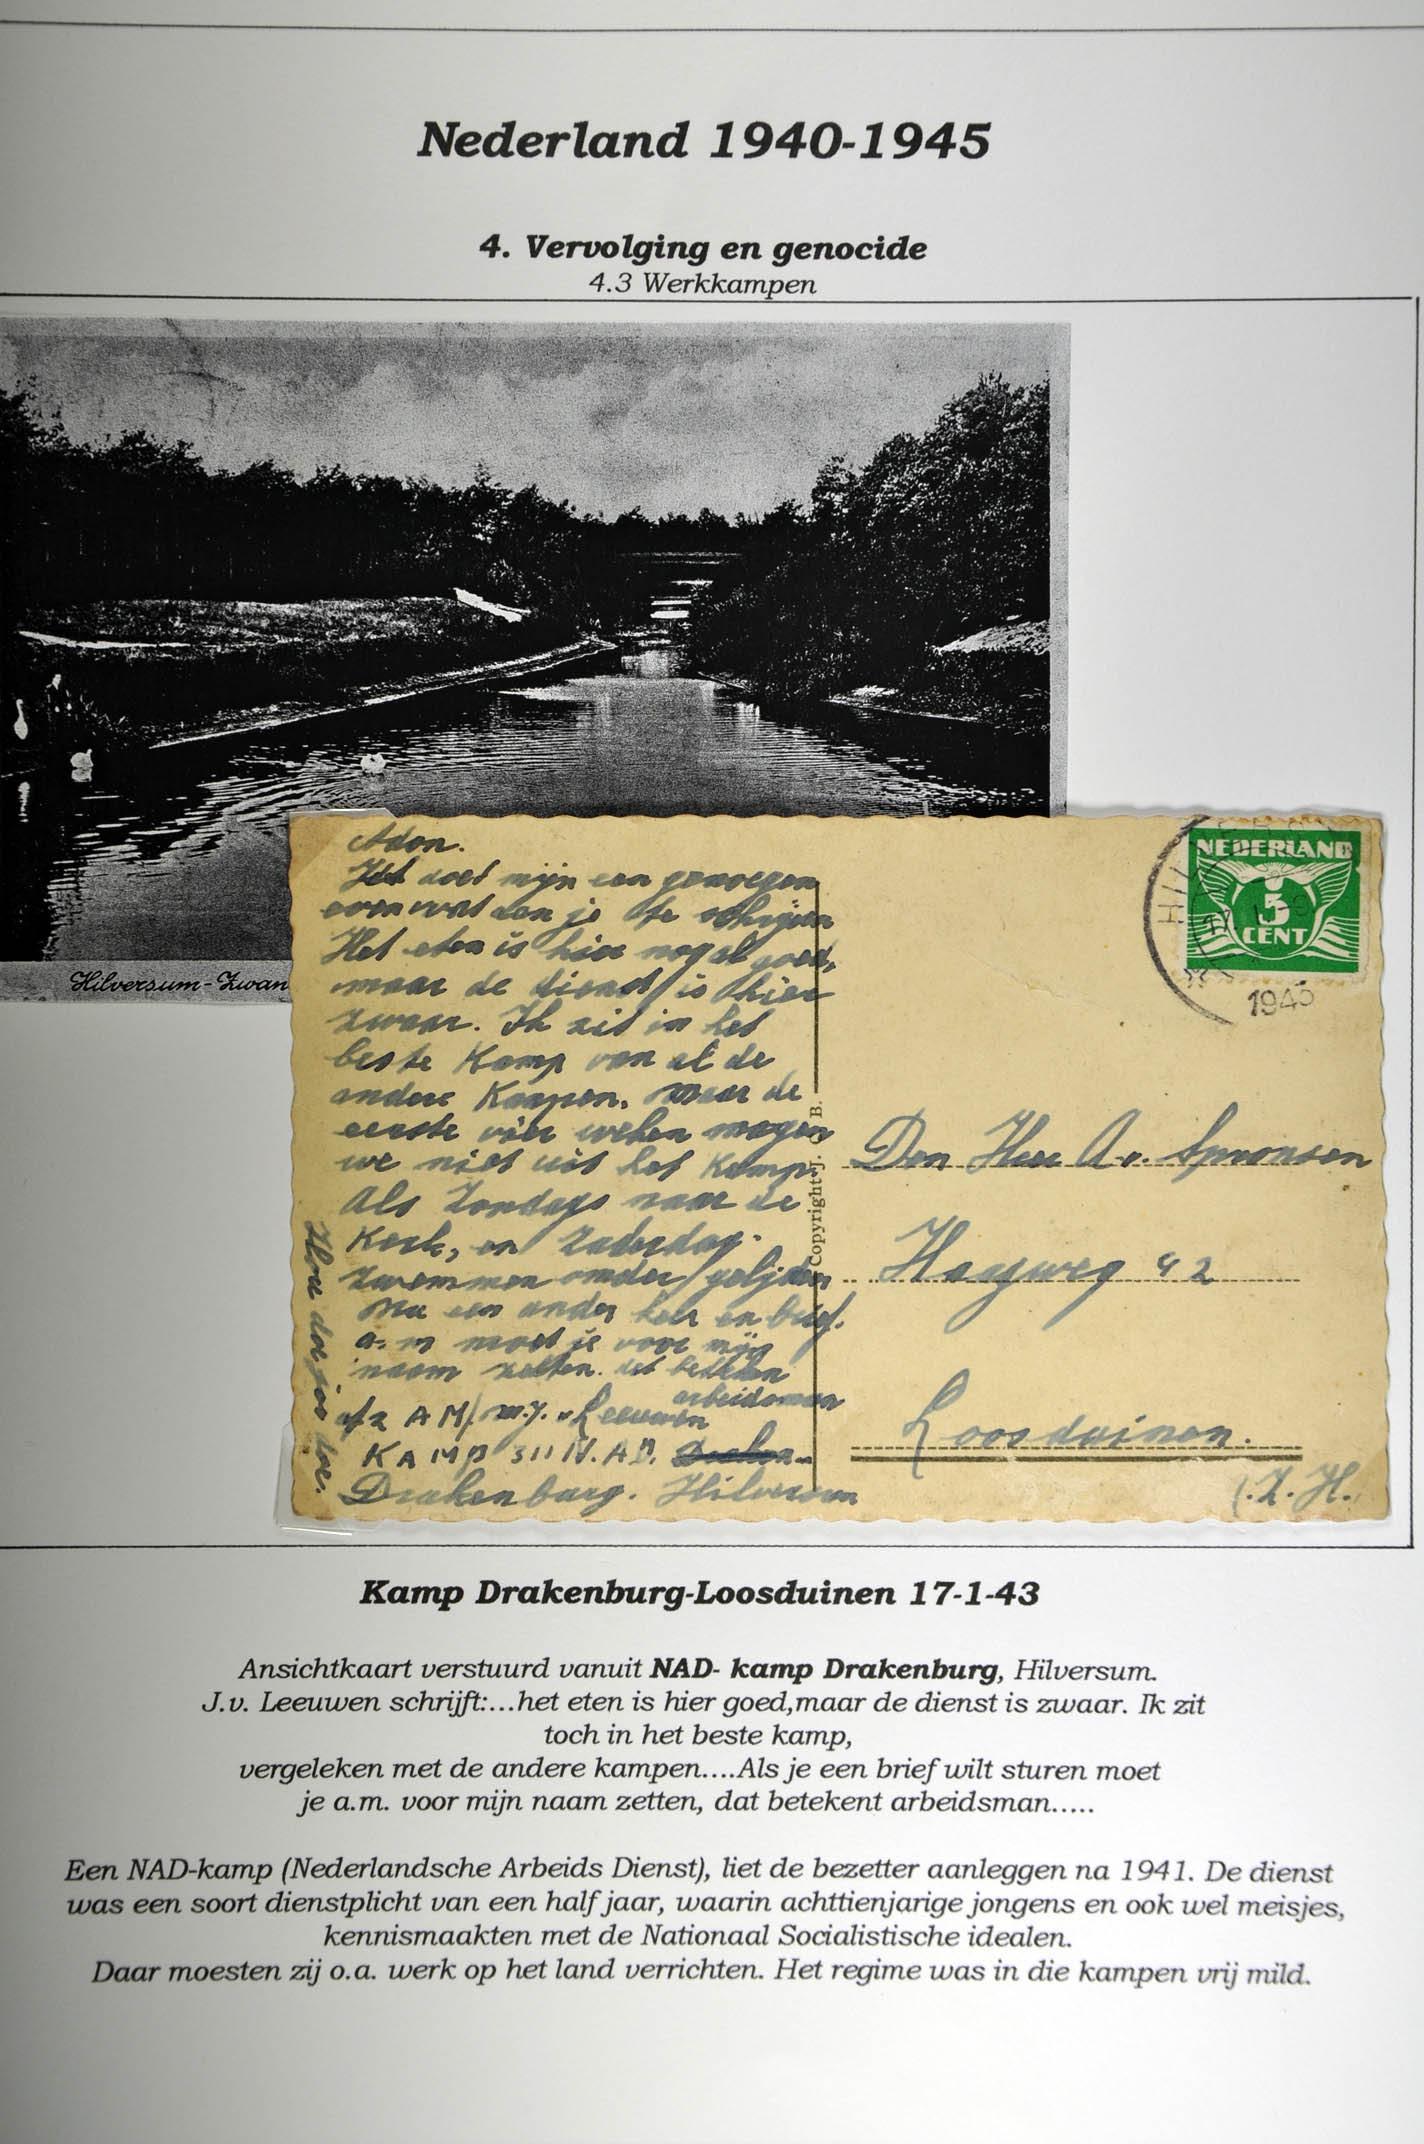 Nederland 1940-1945
4. Vervolging en genocide
4.3 Werkkampen
Hilversum-Zwan
Adon.
Het doet mijn een genoegen
even wat aan je te schrijven
Het eten is hier nogal goed,
maar de dienst is hier
zwaar. Ik zit in het
beste Kamp van al de
andere Kampen. maar de
eerste vier weken mogen
we niet uit het Kamp.
Als Zondags naar de
Kerk, en Zaterdag.
zwemmen onder
Nu een ander keer en brief.
a.m moet je voor mijn
naam zetten. dat beteken
arbeidsman
afz AM/ m.j. v Leeuwen
KAMP 311 N.AD.
Drakenburg. Hilversum
NEDERLAND
5
CENT
HIL
1943
Copyright J. B.
Den Heer A v. Spronsen
Haagweg 42
Loosduinen.
(.Z.H.
Kamp Drakenburg-Loosduinen 17-1-43
Ansichtkaart verstuurd vanuit NAD- kamp Drakenburg, Hilversum.
J.v. Leeuwen schrijft:...het eten is hier goed,maar de dienst is zwaar. Ik zit
toch in het beste kamp,
vergeleken met de andere kampen....Als je een brief wilt sturen moet
je a.m. voor mijn naam zetten, dat betekent arbeidsman.....
Een NAD-kamp (Nederlandsche Arbeids Dienst), liet de bezetter aanleggen na 1941. De dienst
was een soort dienstplicht van een half jaar, waarin achttienjarige jongens en ook wel meisjes,
kennismaakten met de Nationaal Socialistische idealen.
Daar moesten zij o.a. werk op het land verrichten. Het regime was in die kampen vrij mild.